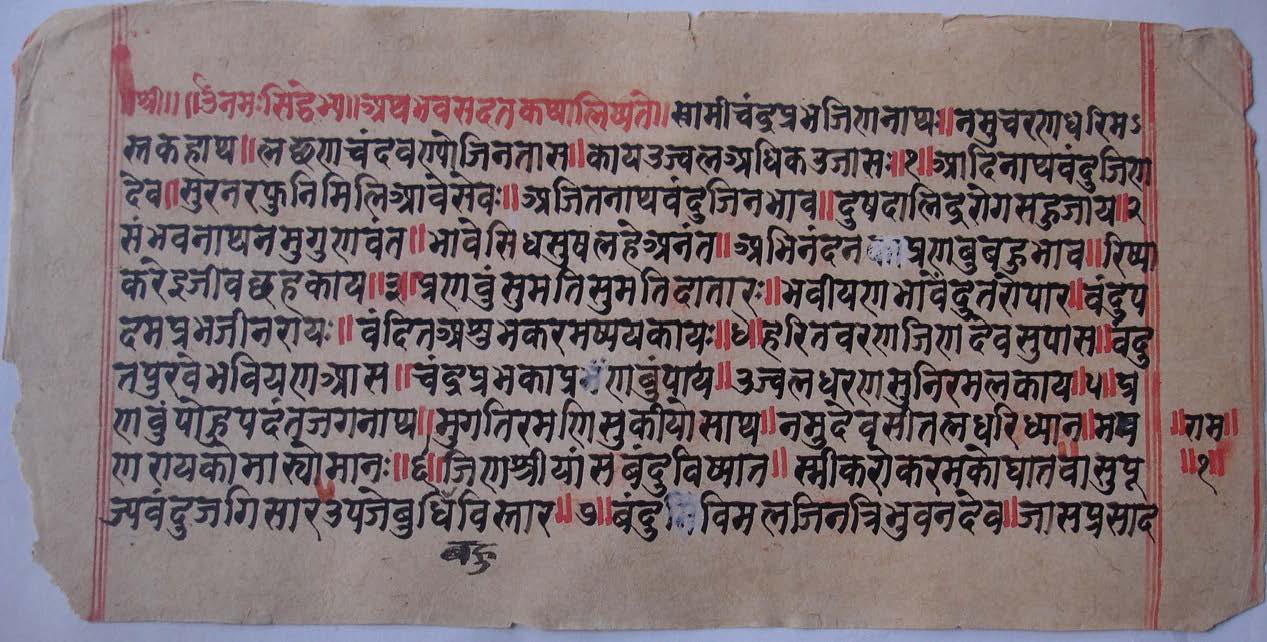 श्री॥ ॥ॐ नमः सिद्धेभ्य॥ अथ भवसदतकथा लिख्यते॥ स्वामी चंद्रप्रभ जिणनाथः॥ नमु चरण धरि मऽ
स्तक हाथ॥ लछण चंद वरणो जिन तास॥ काय उज्वल अधिक उजासः॥१॥ आदिनाथ वंदु जिण
देव॥ सुर नर फुनि मिलि आवे सेवः॥ अजितनाथ वंदु जिन भाव॥ दुष दालिद्र रोग सहु जाय॥२
संभवनाथ नमु गुणवंत॥ भावे सिध सुष लहे अनंत॥ अभिनंदन प्रणवु बहु भाव॥ रिष्या
करे जीव छह काय॥३॥ प्रणवुं सुमति सुमति दातारः॥ भवीयण भावें दुतरो पार॥ वंदु प
दमप्रभ जीनरायः॥ वंदित अशुभ करमष्यय कायः॥४॥ हरित वरण जिण देव सुपास॥ वंदु
त पुरवे भवियण आस॥ चंद्रप्रभका प्रणवुं पाय॥ उज्वल धरण सु निरमल काय॥५॥ प्र
णवुं पोहपदंत जगनाथ॥ मुगति रमणि सु कीयो साथ॥ नमु देव सीतल धरि ध्यान॥ म
णरायको मास्यो मानः॥६॥ जिण श्रीयांस बंदु विष्यात॥ स्मी करो करमको घात वासुपू
ज्य वंदु जगिसार उपजे बुधि विस्तार॥७॥ बंदु विमल जिन त्रिभुवन देव॥ जास प्रसाद
बहु
॥राम॥
॥१॥